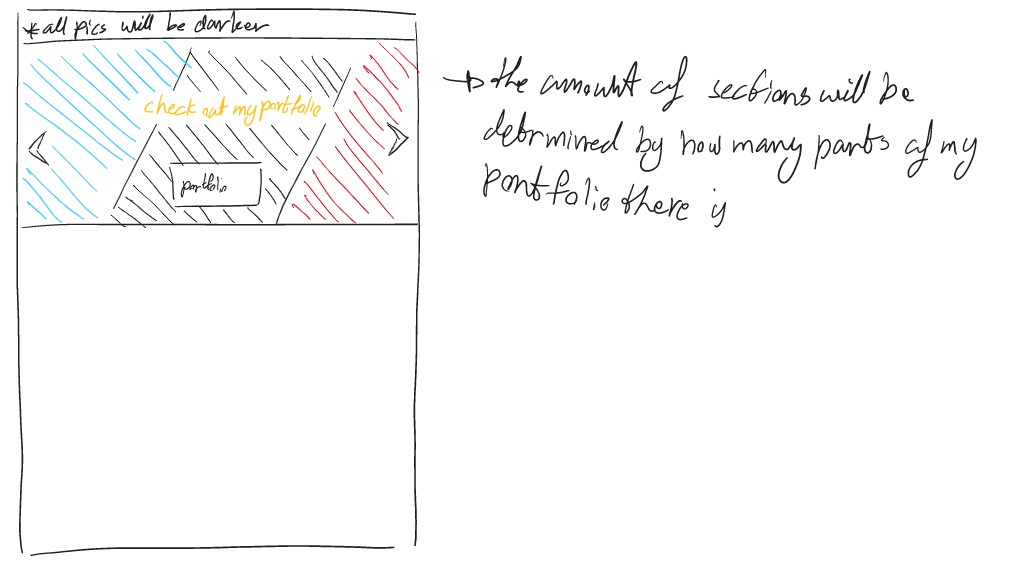 *all pics will be darker
check out my portfolio
portfolio
→ the amount of sections will be
determined by how many parts of my
portfolio there is